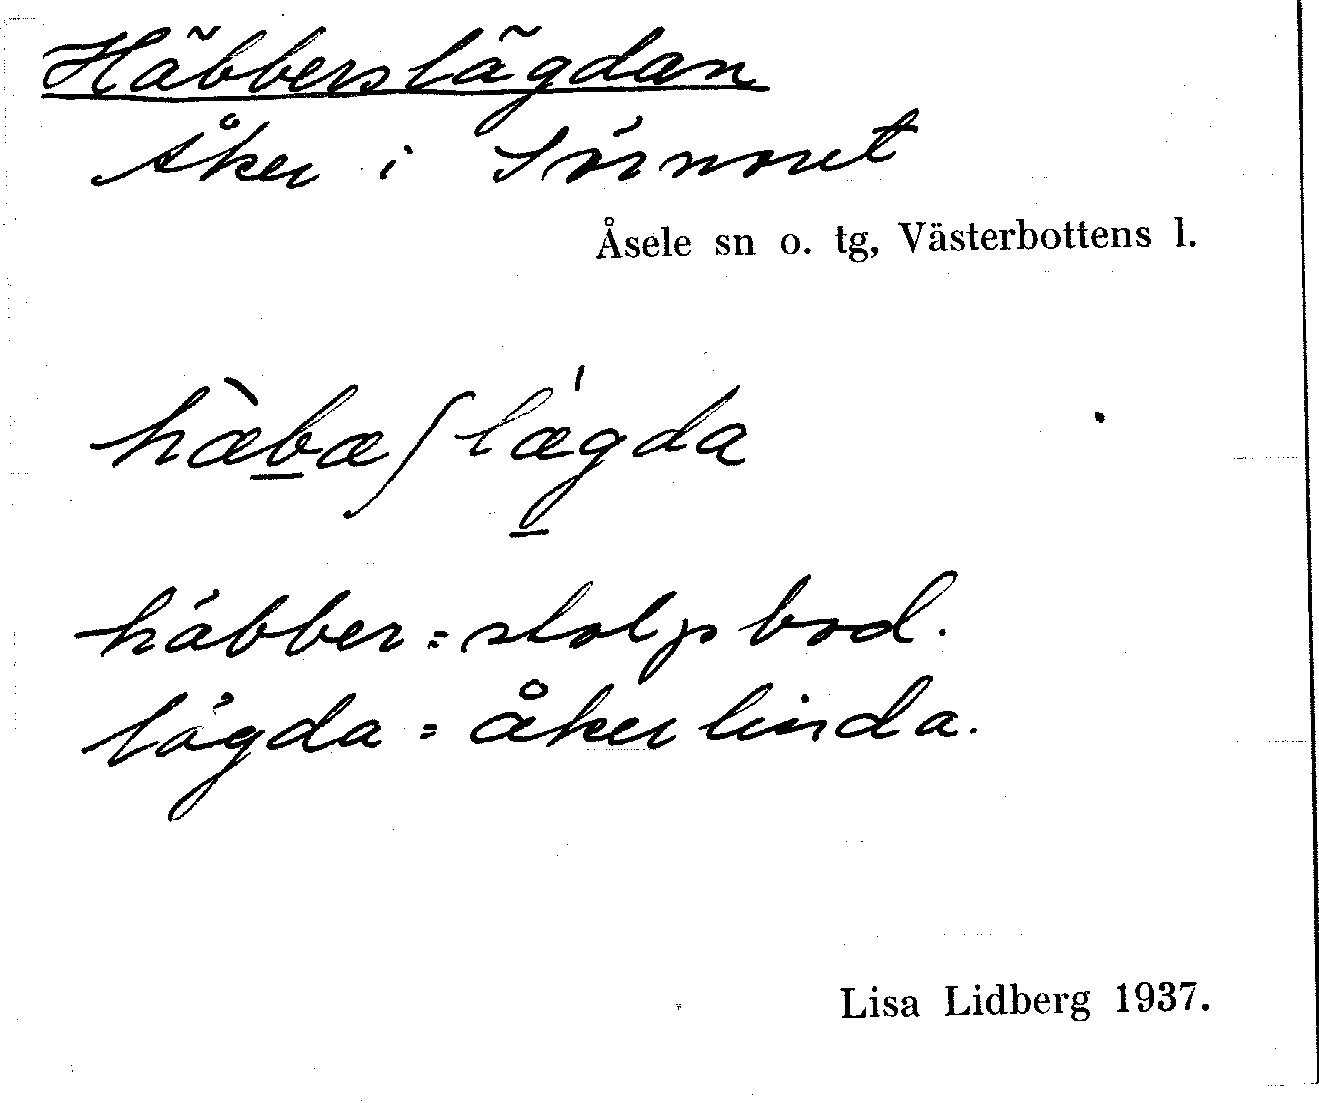 Häbberslägdan
Åker i Sörnoret
Åsele sn o. tg, Västerbottens l.
hæ̀b̲æʃlæ̍g̲da
häbber = stolpbod.
lägda = åkerlinda.
Lisa Lidberg 1937.